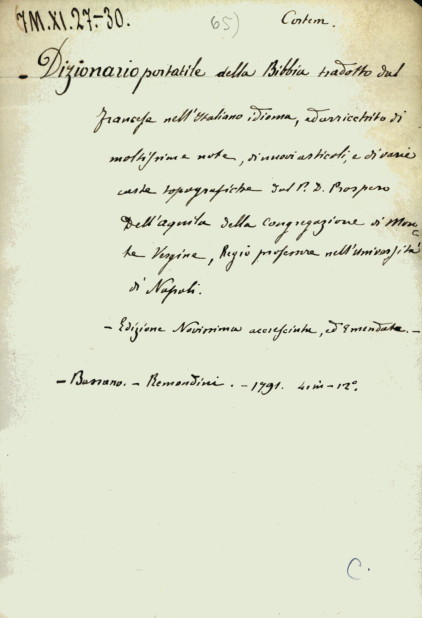 7M.XI.27-30.
65)
Cortem.
- Dizionario portatile della Bibbia tradotto dal
francese nell'Italiano idioma, ed arricchito di
moltissime note, di nuovi articoli, e di varie
carte topografiche dal P. D. Prospero
Dell'Aquila della Congregazione di Mon=
te Vergine, Regio professore nell'università
di Napoli.
- Edizione Novissima accresciuta, ed Emendata. -
- Bassano. - Remondini. - 1791. 4 in - 12°.
C.